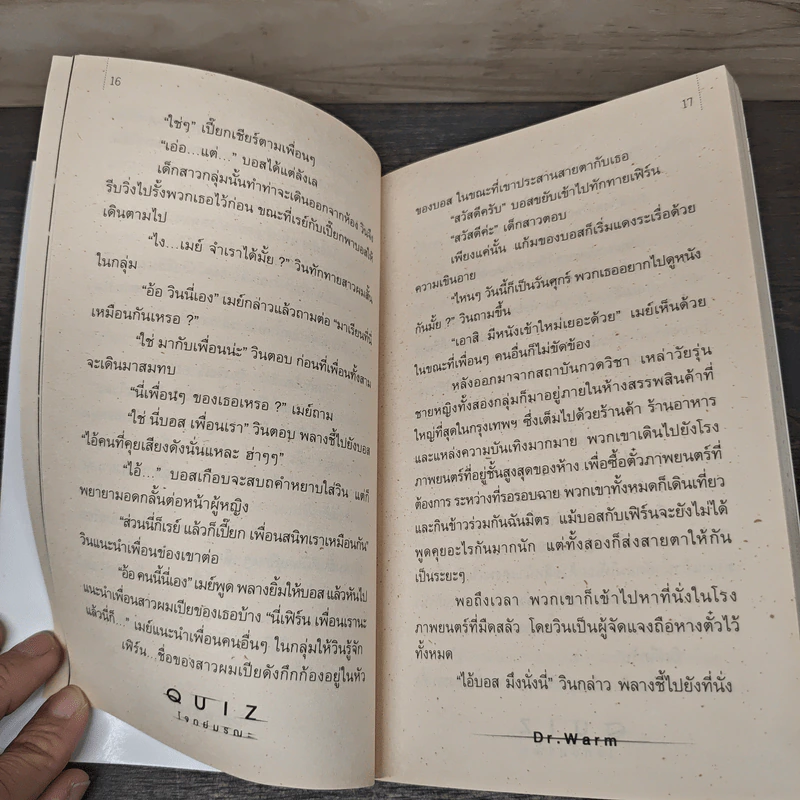 16
"ใช่ๆ" เปี๊ยกเชียร์ตามเพื่อนๆ
"เอ่อ...แต่..." บอสได้แต่ลังเล
เด็กสาวกลุ่มนั้นทำท่าจะเดินออกจากห้อง วินจึง
รีบวิ่งไปรั้งพวกเธอไว้ก่อน ขณะที่เรย์กับเปี๊ยกพาบอสให้
เดินตามไป
"ไง...เมย์ จำเราได้มั้ย ?" วินทักทายสาวผมสั้น
ในกลุ่ม
"อ้อ วินนี่เอง" เมย์กล่าวแล้วถามต่อ "มาเรียนที่นี่
เหมือนกันเหรอ ?"
"ใช่ มากับเพื่อนน่ะ" วินตอบ ก่อนที่เพื่อนทั้งสาม
จะเดินมาสมทบ
"นี่เพื่อนๆ ของเธอเหรอ ?" เมย์ถาม
"ใช่ นี่บอส เพื่อนเรา" วินตอบ พลางชี้ไปยังบอส
"ไอ้คนที่คุยเสียงดังนั่นแหละ ฮ่าๆๆ"
"ไอ้..." บอสเกือบจะสบถคำหยาบใส่วิน แต่ก็
พยายามอดกลั้นต่อหน้าผู้หญิง
"ส่วนนี่ก็เรย์ แล้วก็เปี๊ยก เพื่อนสนิทเราเหมือนกัน"
วินแนะนำเพื่อนของเขาต่อ
"อ้อ คนนี้นี่เอง" เมย์พูด พลางยิ้มให้บอส แล้วหันไป
แนะนำเพื่อนสาวผมเปียของเธอบ้าง "นี่เฟิร์น เพื่อนเรานะ
แล้วนี่ก็..." เมย์แนะนำเพื่อนคนอื่นๆ ในกลุ่มให้วินรู้จัก
เฟิร์น...ชื่อของสาวผมเปียดังกึกก้องอยู่ในหัว
QUIZ
โจทย์มรณะ
17
ของบอส ในขณะที่เขาประสานสายตากับเธอ
"สวัสดีครับ" บอสขยับเข้าไปทักทายเฟิร์น
"สวัสดีค่ะ" เด็กสาวตอบ
เพียงแค่นั้น แก้มของบอสก็เริ่มแดงระเรื่อด้วย
ความเขินอาย
"ไหนๆ วันนี้ก็เป็นวันศุกร์ พวกเธออยากไปดูหนัง
กันมั้ย ?" วินถามขึ้น
"เอาสิ มีหนังเข้าใหม่เยอะด้วย" เมย์เห็นด้วย
ในขณะที่เพื่อนๆ คนอื่นก็ไม่ขัดข้อง
หลังออกมาจากสถาบันกวดวิชา เหล่าวัยรุ่น
ชายหญิงทั้งสองกลุ่มก็มาอยู่ภายในห้างสรรพสินค้าที่
ใหญ่ที่สุดในกรุงเทพฯ ซึ่งเต็มไปด้วยร้านค้า ร้านอาหาร
และแหล่งความบันเทิงมากมาย พวกเขาเดินไปยังโรง
ภาพยนตร์ที่อยู่ชั้นสูงสุดของห้าง เพื่อซื้อตั๋วภาพยนตร์ที่
ต้องการ ระหว่างที่รอรอบฉาย พวกเขาทั้งหมดก็เดินเที่ยว
และกินข้าวร่วมกันฉันมิตร แม้บอสกับเฟิร์นจะยังไม่ได้
พูดคุยอะไรกันมากนัก แต่ทั้งสองก็ส่งสายตาให้กัน
เป็นระยะๆ
พอถึงเวลา พวกเขาก็เข้าไปหาที่นั่งในโรง
ภาพยนตร์ที่มืดสลัว โดยวินเป็นผู้จัดแจงถือหางตั๋วไว้
ทั้งหมด
"ไอ้บอส มึงนั่งนี่" วินกล่าว พลางชี้ไปยังที่นั่ง
Dr.Warm